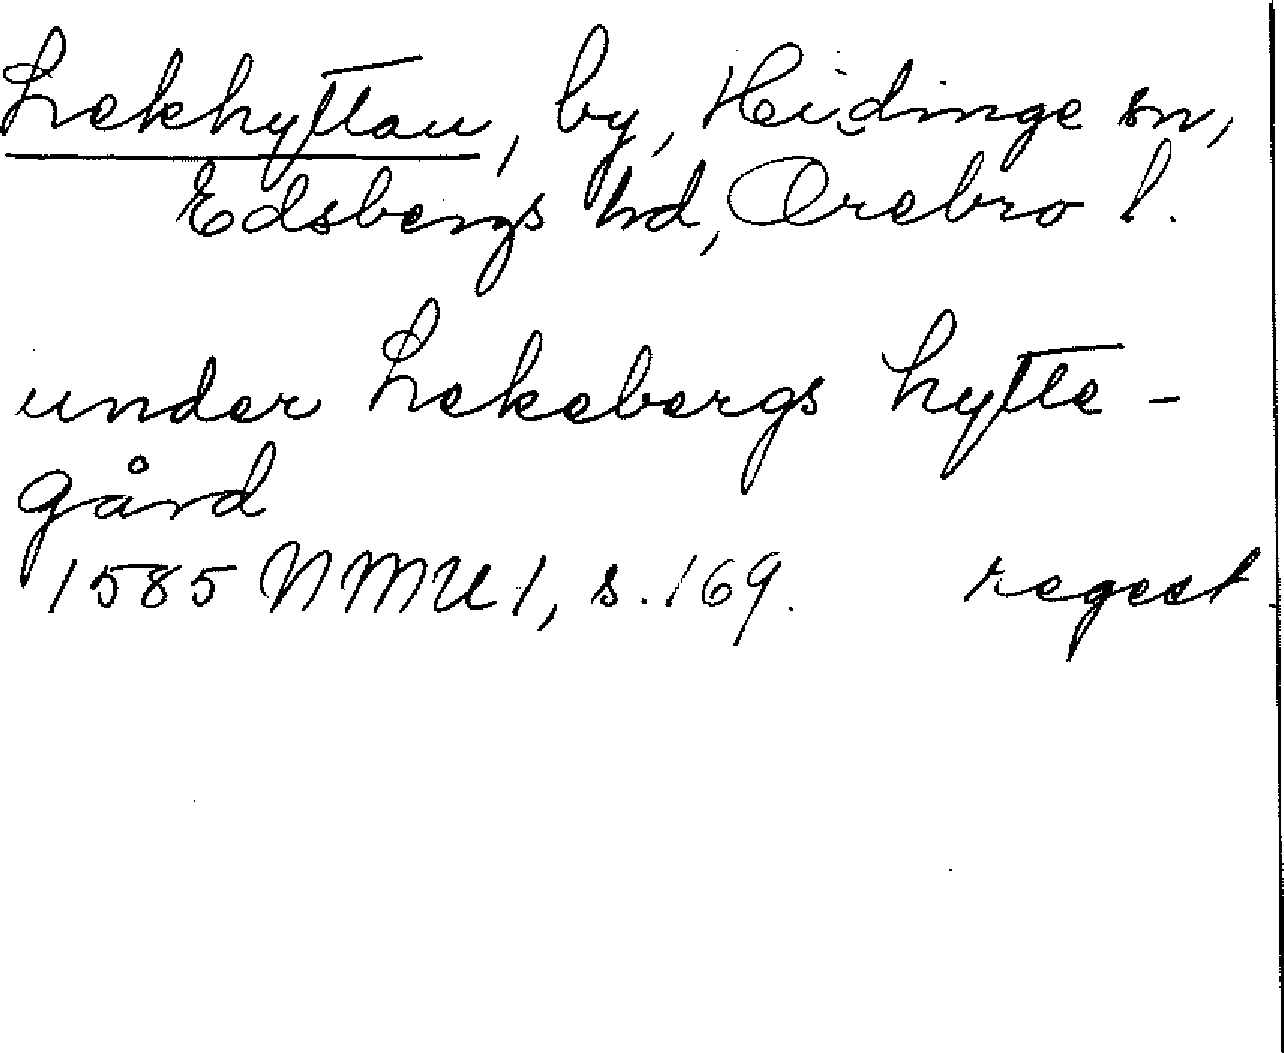 Lekhyttan, by, Hidinge sn,
Edsbergs hd, Örebro l.
under Lekebergs hytte-
gård
1585 NMU 1, s. 169. regest